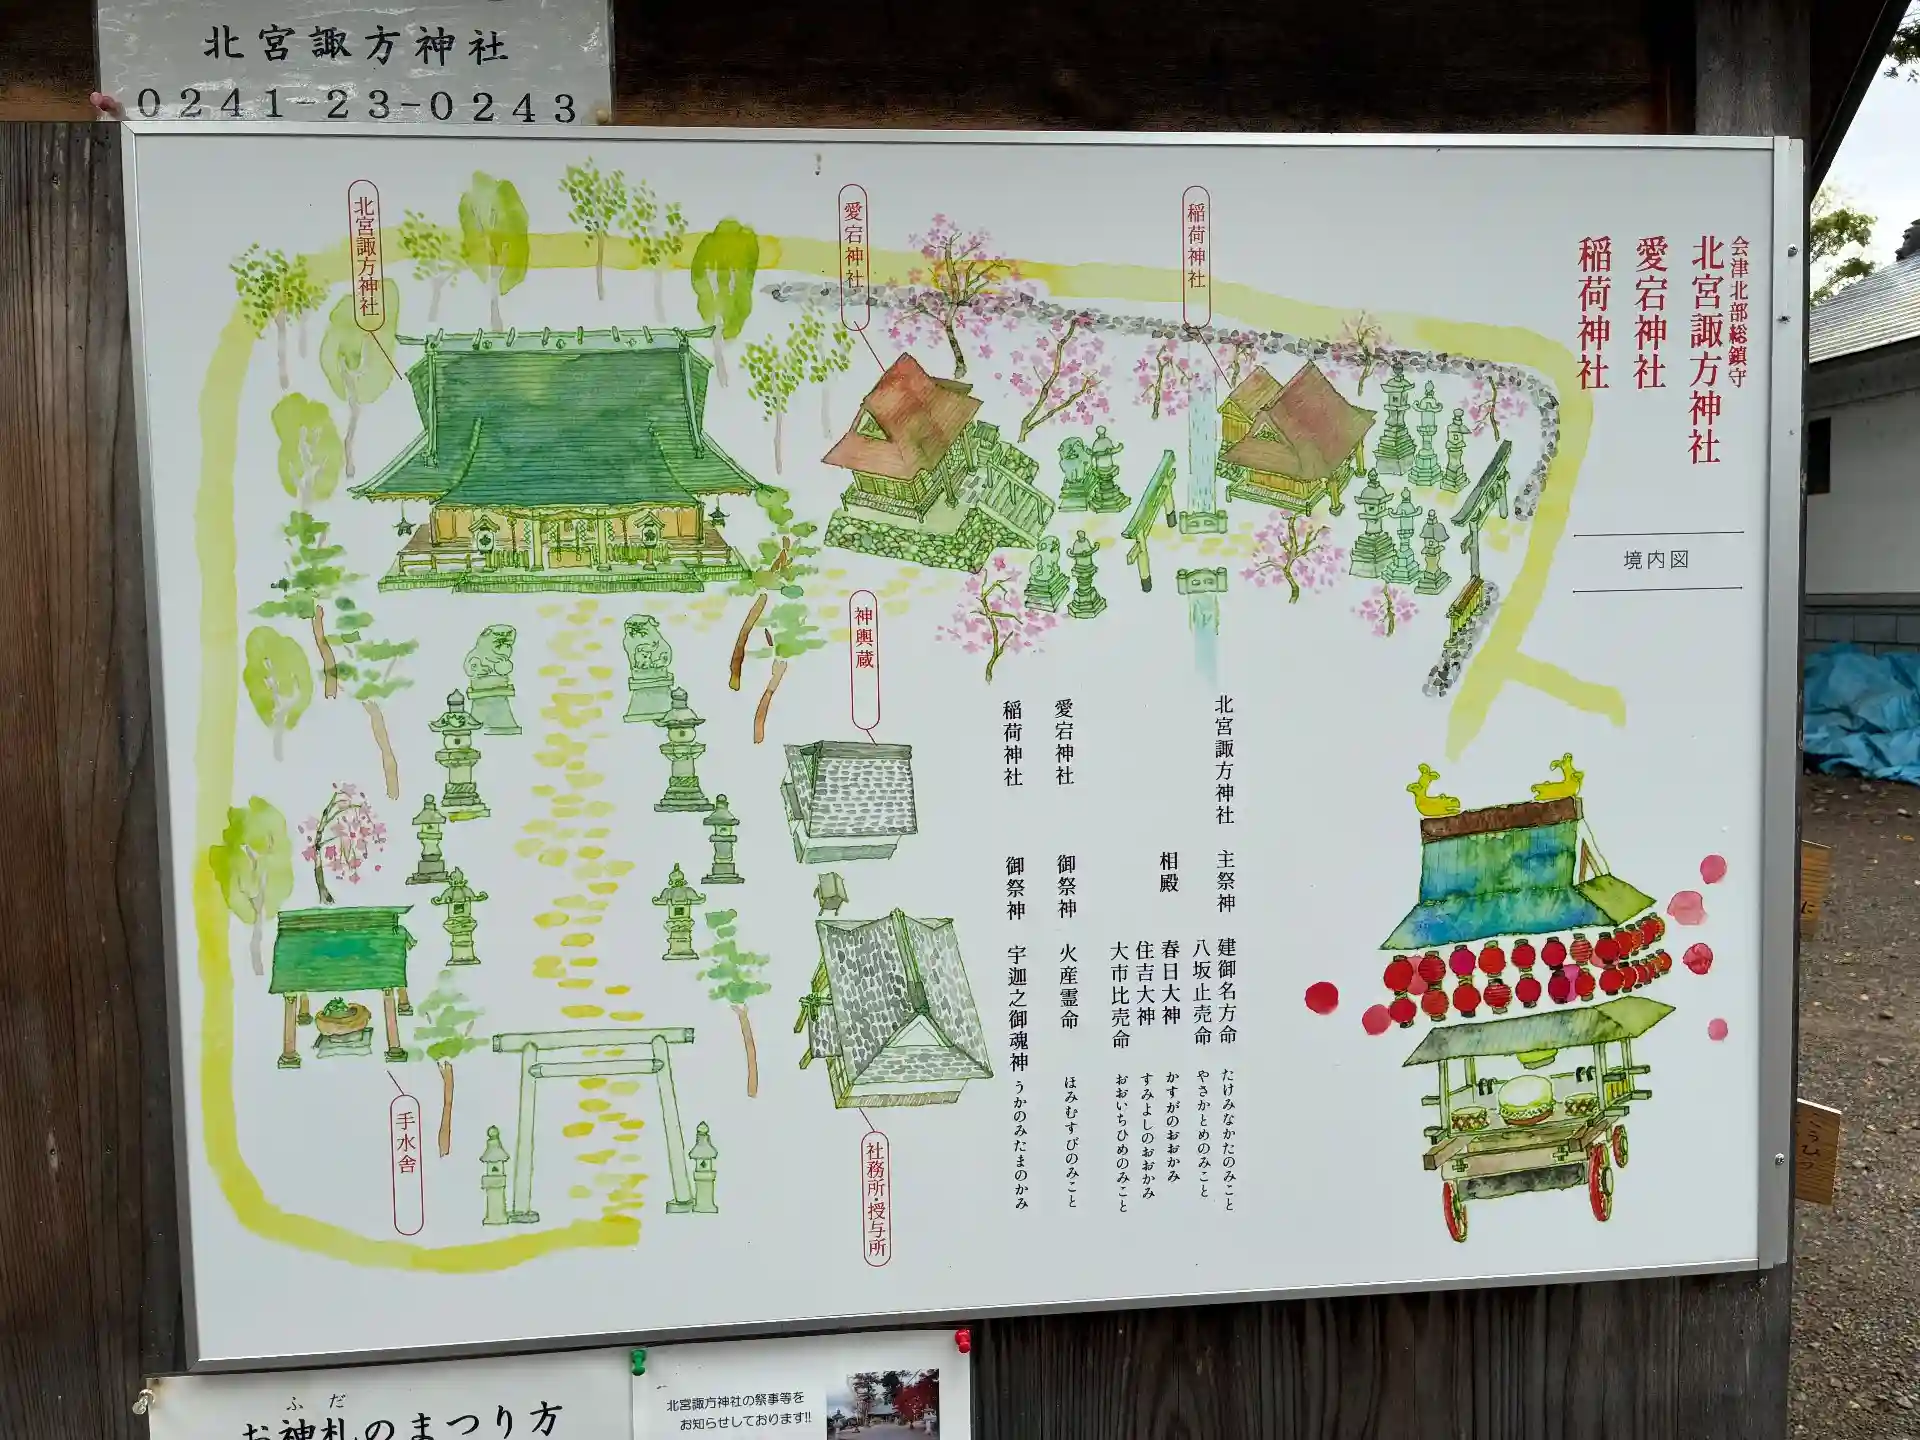 北宮諏方神社
0241-23-0243
会津北部総鎮守
北宮諏方神社
愛宕神社
稲荷神社
境内図
北宮諏方神社
愛宕神社
稲荷神社
神輿蔵
手水舎
社務所・授与所
北宮諏方神社 主祭神 建御名方命 たけみなかたのみこと
八坂止売命 やさかとめのみこと
相殿 春日大神 かすがのおおかみ
住吉大神 すみよしのおおかみ
大市比売命 おおいちひめのみこと
愛宕神社 御祭神 火産霊命 ほみむすびのみこと
稲荷神社 御祭神 宇迦之御魂神 うかのみたまのかみ
ふだ
お神札のまつり方
北宮諏方神社の祭事等を
お知らせしております!!